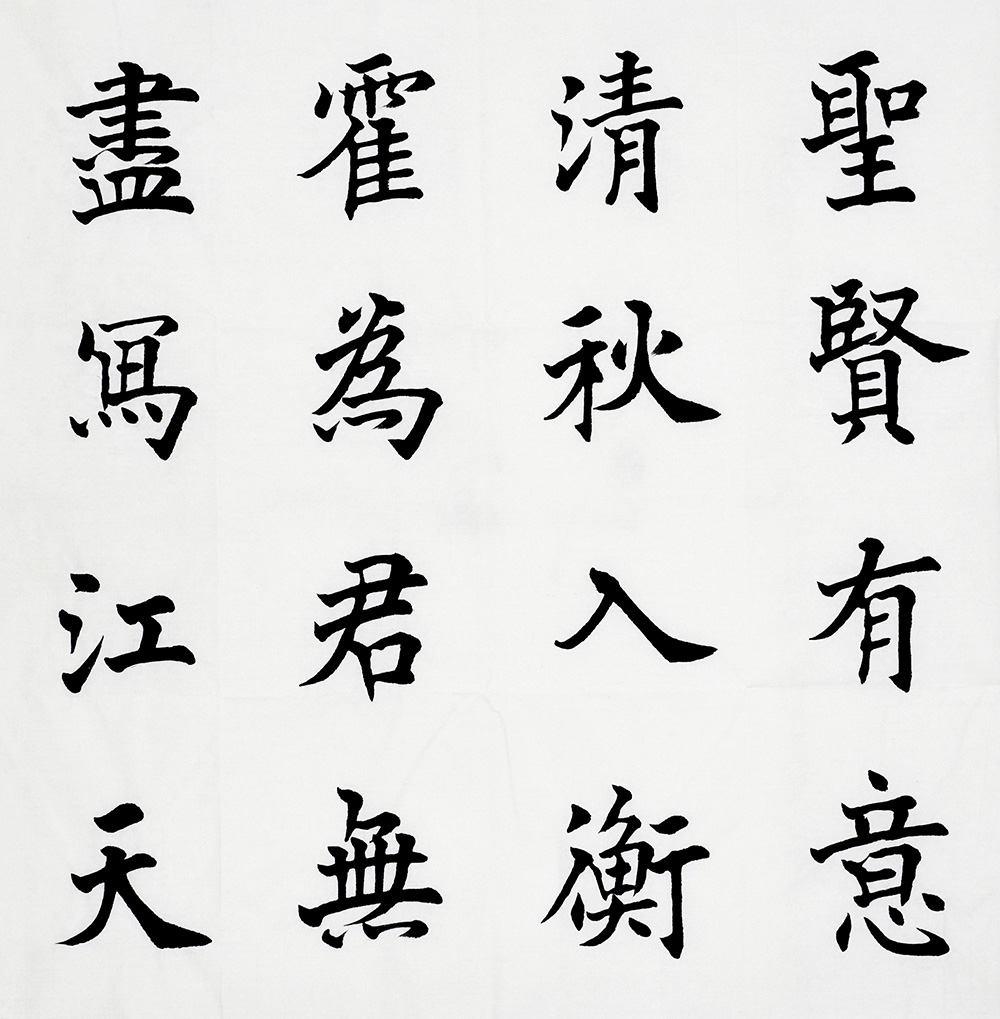 聖賢有意
清秋入衡
霍為君無
盡寫江天